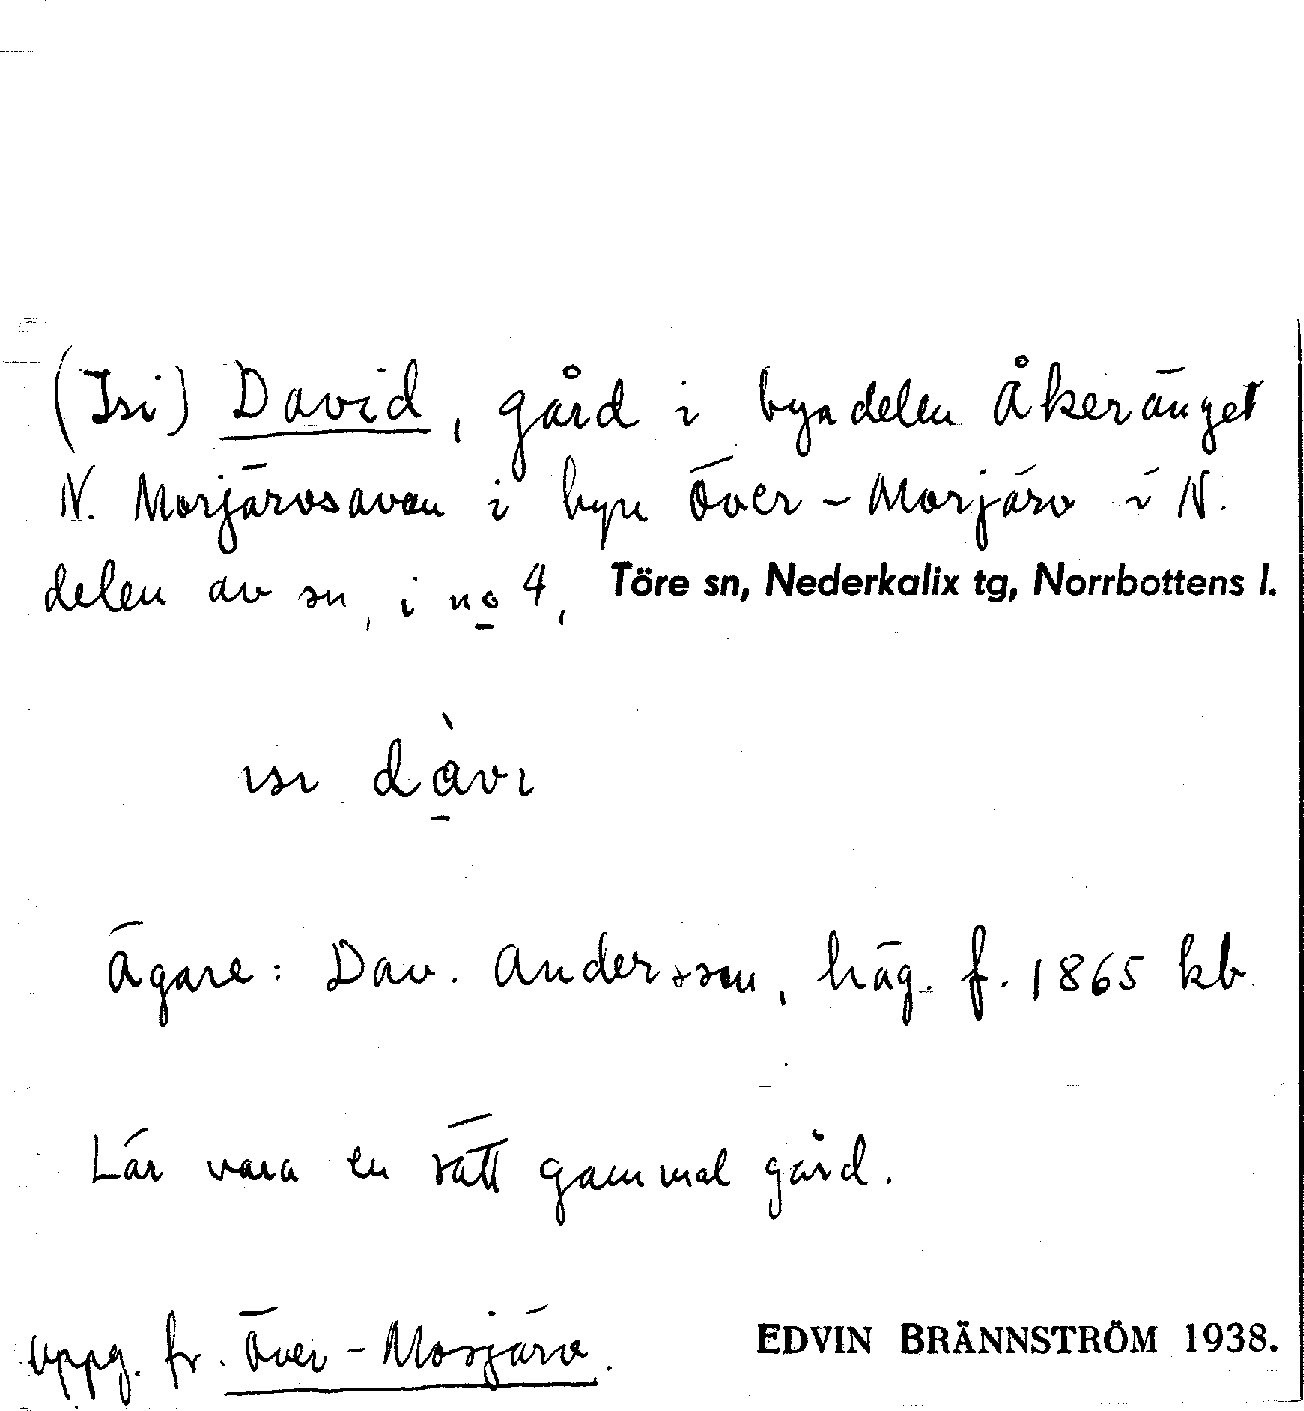 (Isi) David, gård i byadelen Åkeränget
N. Morjärvsavan i byn Över-Morjärv i N.
delen av sn, i no 4, Töre sn, Nederkalix tg, Norrbottens l.
ısı dàvı
Ägare: Dav. Andersson, häg. f. 1865 kb
Lär vara en rätt gammal gård.
Uppg. fr. Över-Morjärv. EDVIN BRÄNNSTRÖM 1938.